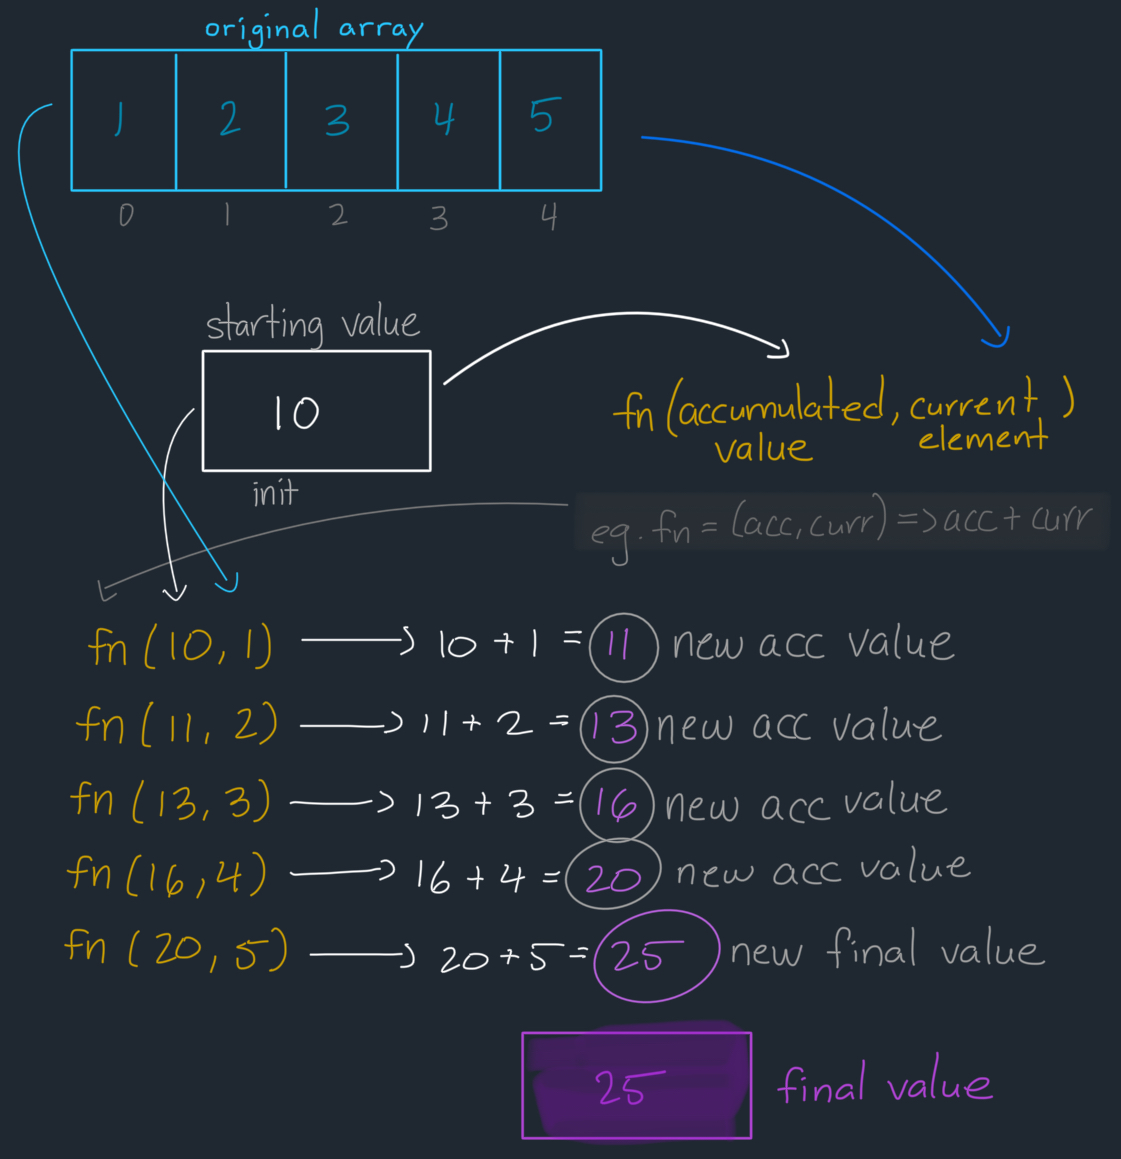 original array
1 2 3 4 5
0 1 2 3 4
starting value
10
init
fn (accumulated, current )
value element
eg. fn = (acc, curr) => acc + curr
fn (10, 1) → 10 + 1 = 11 new acc value
fn (11, 2) → 11 + 2 = 13 new acc value
fn (13, 3) → 13 + 3 = 16 new acc value
fn (16, 4) → 16 + 4 = 20 new acc value
fn (20, 5) → 20 + 5 = 25 new final value
25 final value